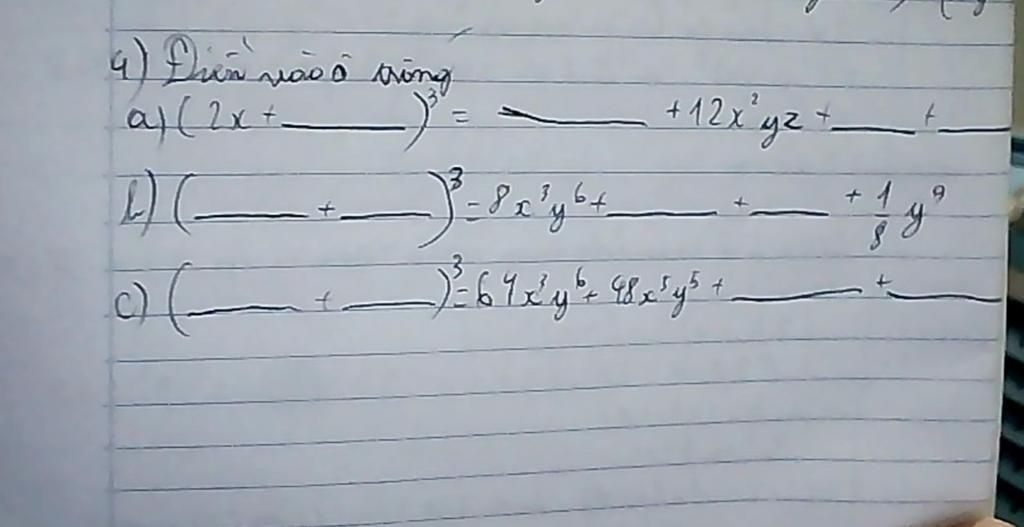 4) Điền vào ô trống
a) (2x + ____)³ = ____ + 12x²yz + ____ + ____
b) (____ + ____)³ = 8x³y⁶ + ____ + ____ + 1/8 y⁹
c) (____ + ____)³ = 64x³y⁶ + 48x⁵y⁵ + ____ + ____